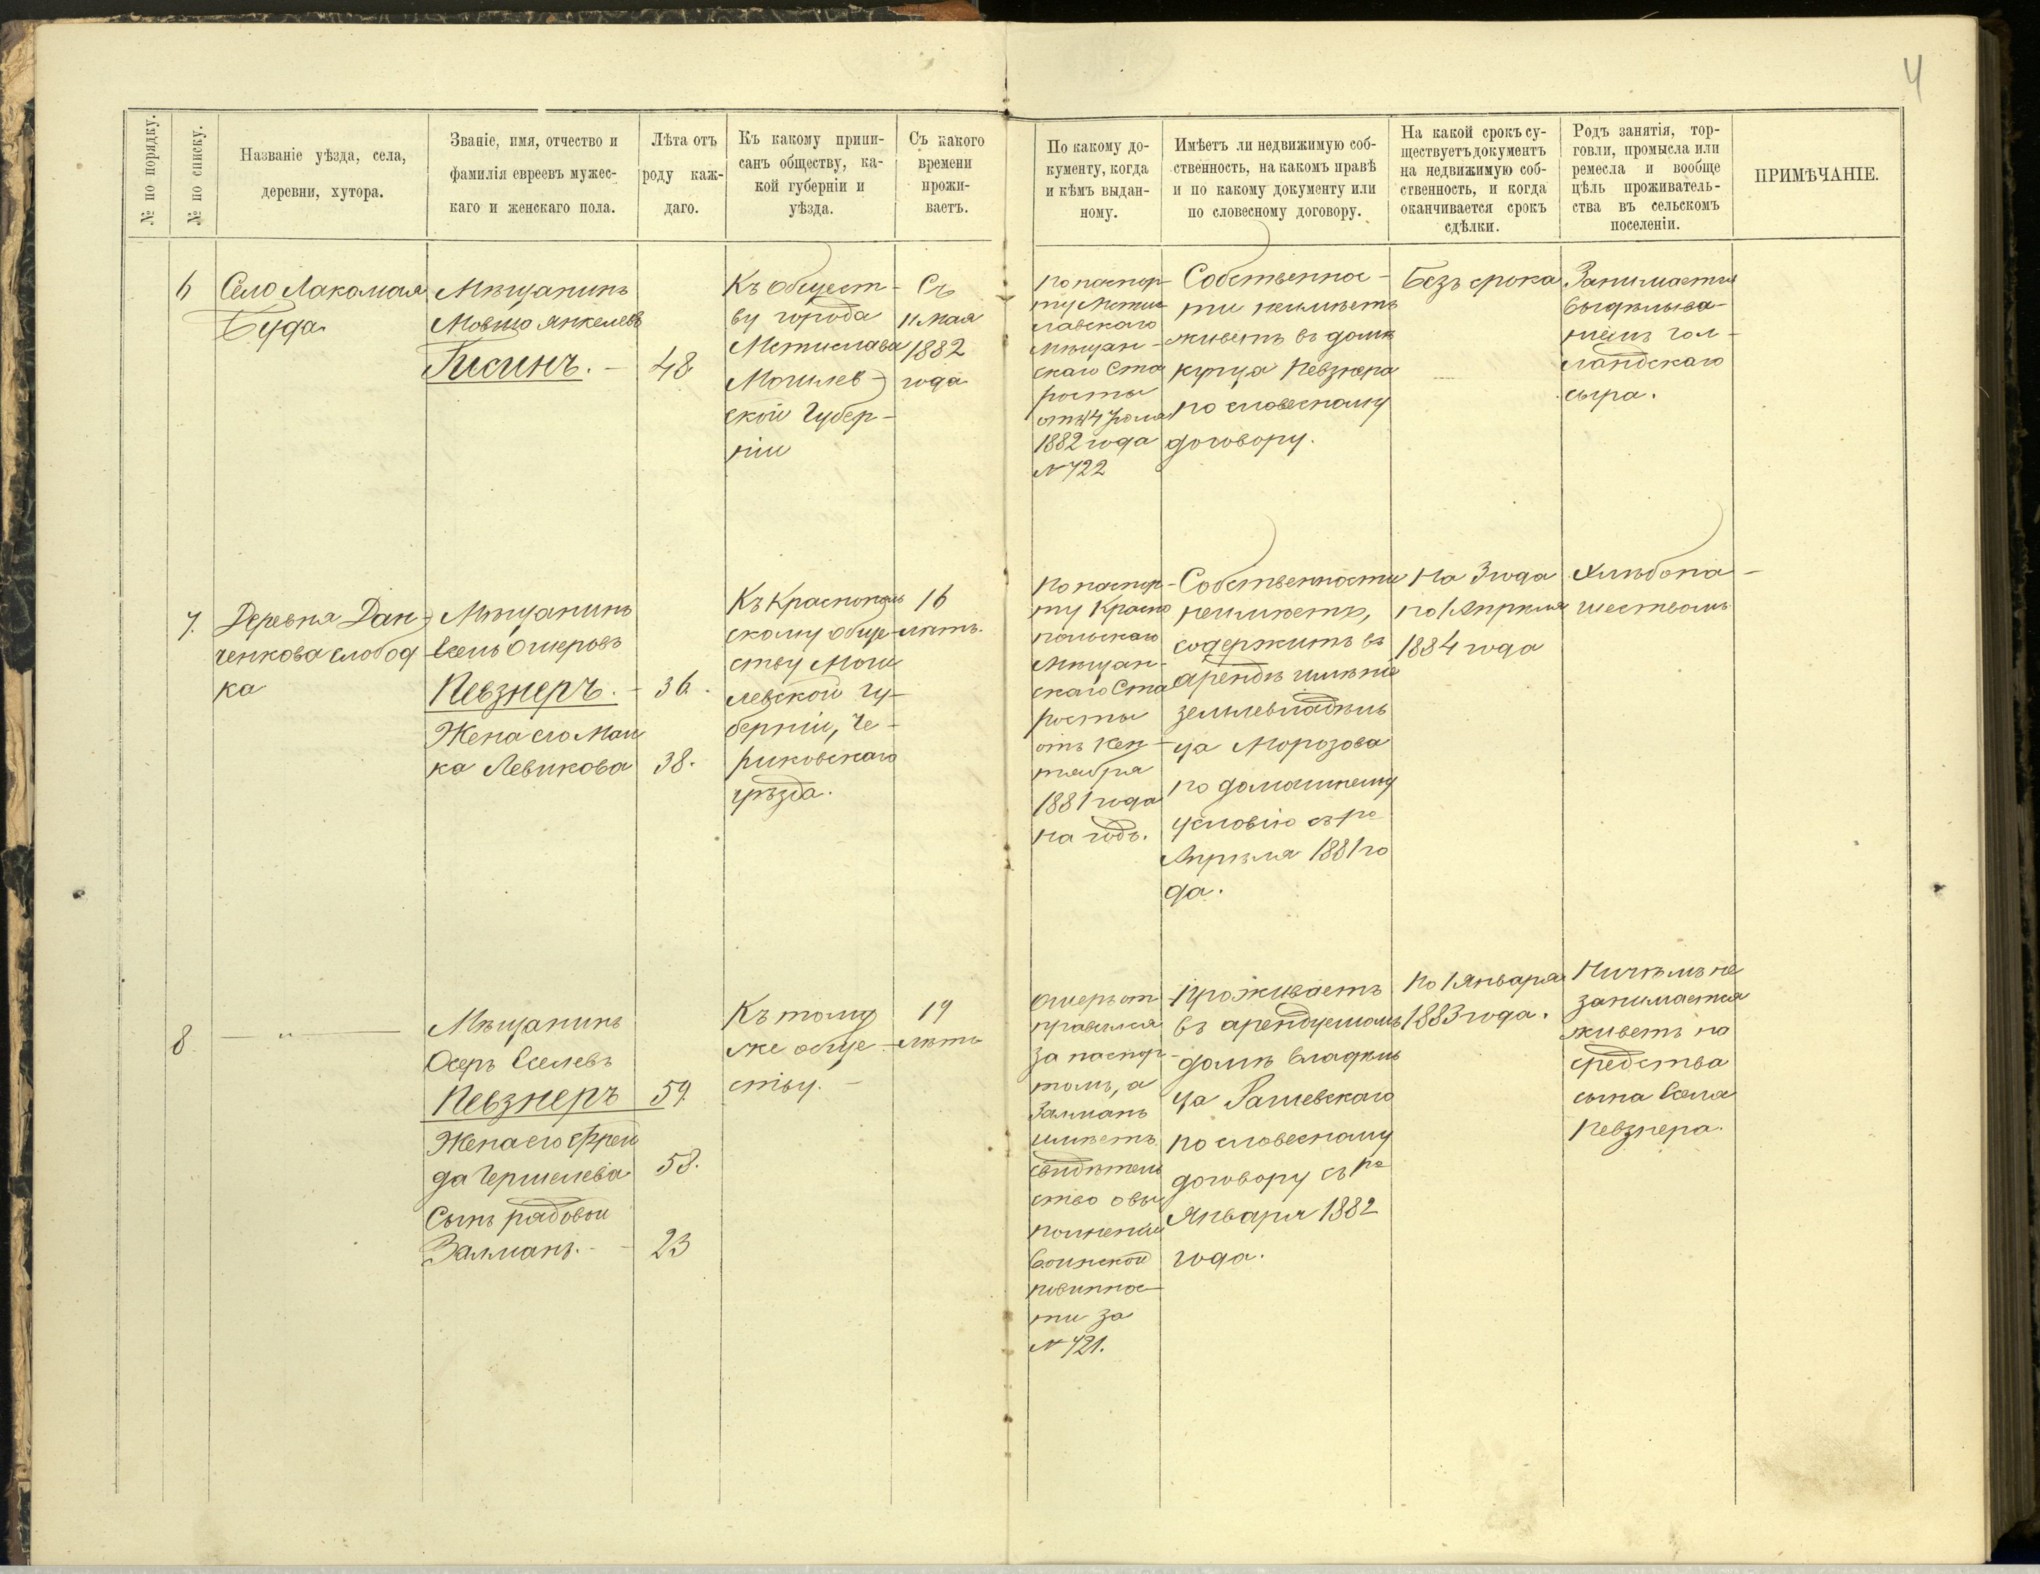 4
№ по порядку.
№ по списку.
Названіе уѣзда, села,
деревни, хутора.
Званіе, имя, отчество и
фамилія евреевъ мужес-
каго и женскаго пола.
Лѣта отъ
роду каж-
даго.
Къ какому припи-
санъ обществу, ка-
кой губерніи и
уѣзда.
Съ какого
времени
прожи-
ваетъ.
По какому до-
кументу, когда
и кѣмъ выдан-
ному.
Имѣетъ ли недвижимую соб-
ственность, на какомъ правѣ
и по какому документу или
по словесному договору.
На какой срокъ су-
ществуетъ документъ
на недвижимую соб-
ственность, и когда
оканчивается срокъ
сдѣлки.
Родъ занятія, тор-
говли, промысла или
ремесла и вообще
цѣль проживатель-
ства въ сельскомъ
поселеніи.
ПРИМѢЧАНІЕ.
6
Село Лакомая
Буда
Мѣщанинъ
Мовшо Янкелевъ
Гисинъ. —
48
Къ общест-
ву города
Мстиславля
Могилев-
ской Губер-
ніи
Съ
11 Мая
1882
года
По паспор-
ту Мстис
лавскаго
Мѣщан-
скаго Ста
росты
1882 года
№ 722
Собственнос-
ти неимѣетъ
живетъ въ домѣ
купца Певзнера
по словесному
договору.
Безъ срока
Занимается
выдѣлыва-
ніемъ гол-
ландскаго
сыра.
7.
Деревня Дан-
ченкова Слобод
ка
Мѣщанинъ
Есель Ошеровъ
Певзнеръ. —
36.
Жена его Мап
ка Левикова
38.
Къ Краснополь
скому обще-
ству Моги
левской гу-
берніи, Че-
риковскаго
уѣзда.
16
лѣтъ.
По паспор-
ту Красно
польскаго
Мѣщан-
скаго Ста
росты
тября
1881 года
на годъ.
Собственности
неимѣетъ,
содержитъ въ
арендѣ имѣніе
землевладѣль
ца Морозова
по домашнему
условію съ 1го
Апрѣля 1881 го
да.
На 3 года
по 1 Апрѣля
1884 года
Хлѣбопа-
шествомъ
8
— " —
Мѣщанинъ
Осеръ Еселевъ
Певзнеръ
59
Жена его Фрей
да Гершелева
58.
Сынъ рядовой
Залманъ. —
23
Къ тому
же обще-
ству. —
19
лѣтъ
Ошеръ от
правился
за паспор-
томъ, а
Залманъ
имѣетъ
свидѣтель
ство о вы
полненіи
воинской
повиннос-
ти за
№ 721.
Проживаетъ
въ арендуемомъ
домѣ владѣль
ца Рашевскаго
по словесному
договору съ 1го
Января 1882
года.
по 1 Января
1883 года.
Ничѣмъ не
занимается
живетъ на
средства
сына Еселя
Певзнера.